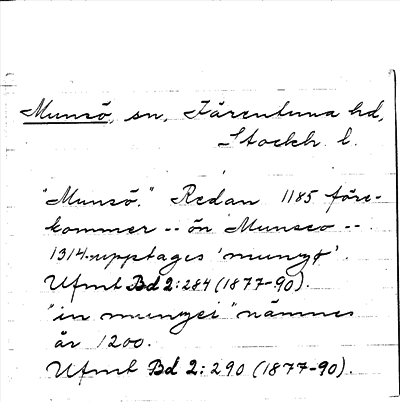 Munsö, sn, Färentuna hd,
Stockh. l.
"Munsö." Redan 1185 före-
kommer -- ön Munsco --.
1314 upptages 'munsø'.
Ufmt Bd 2:284 (1877-90).
"in munsøi" nämnes
år 1200.
Ufmt Bd 2:290 (1877-90).